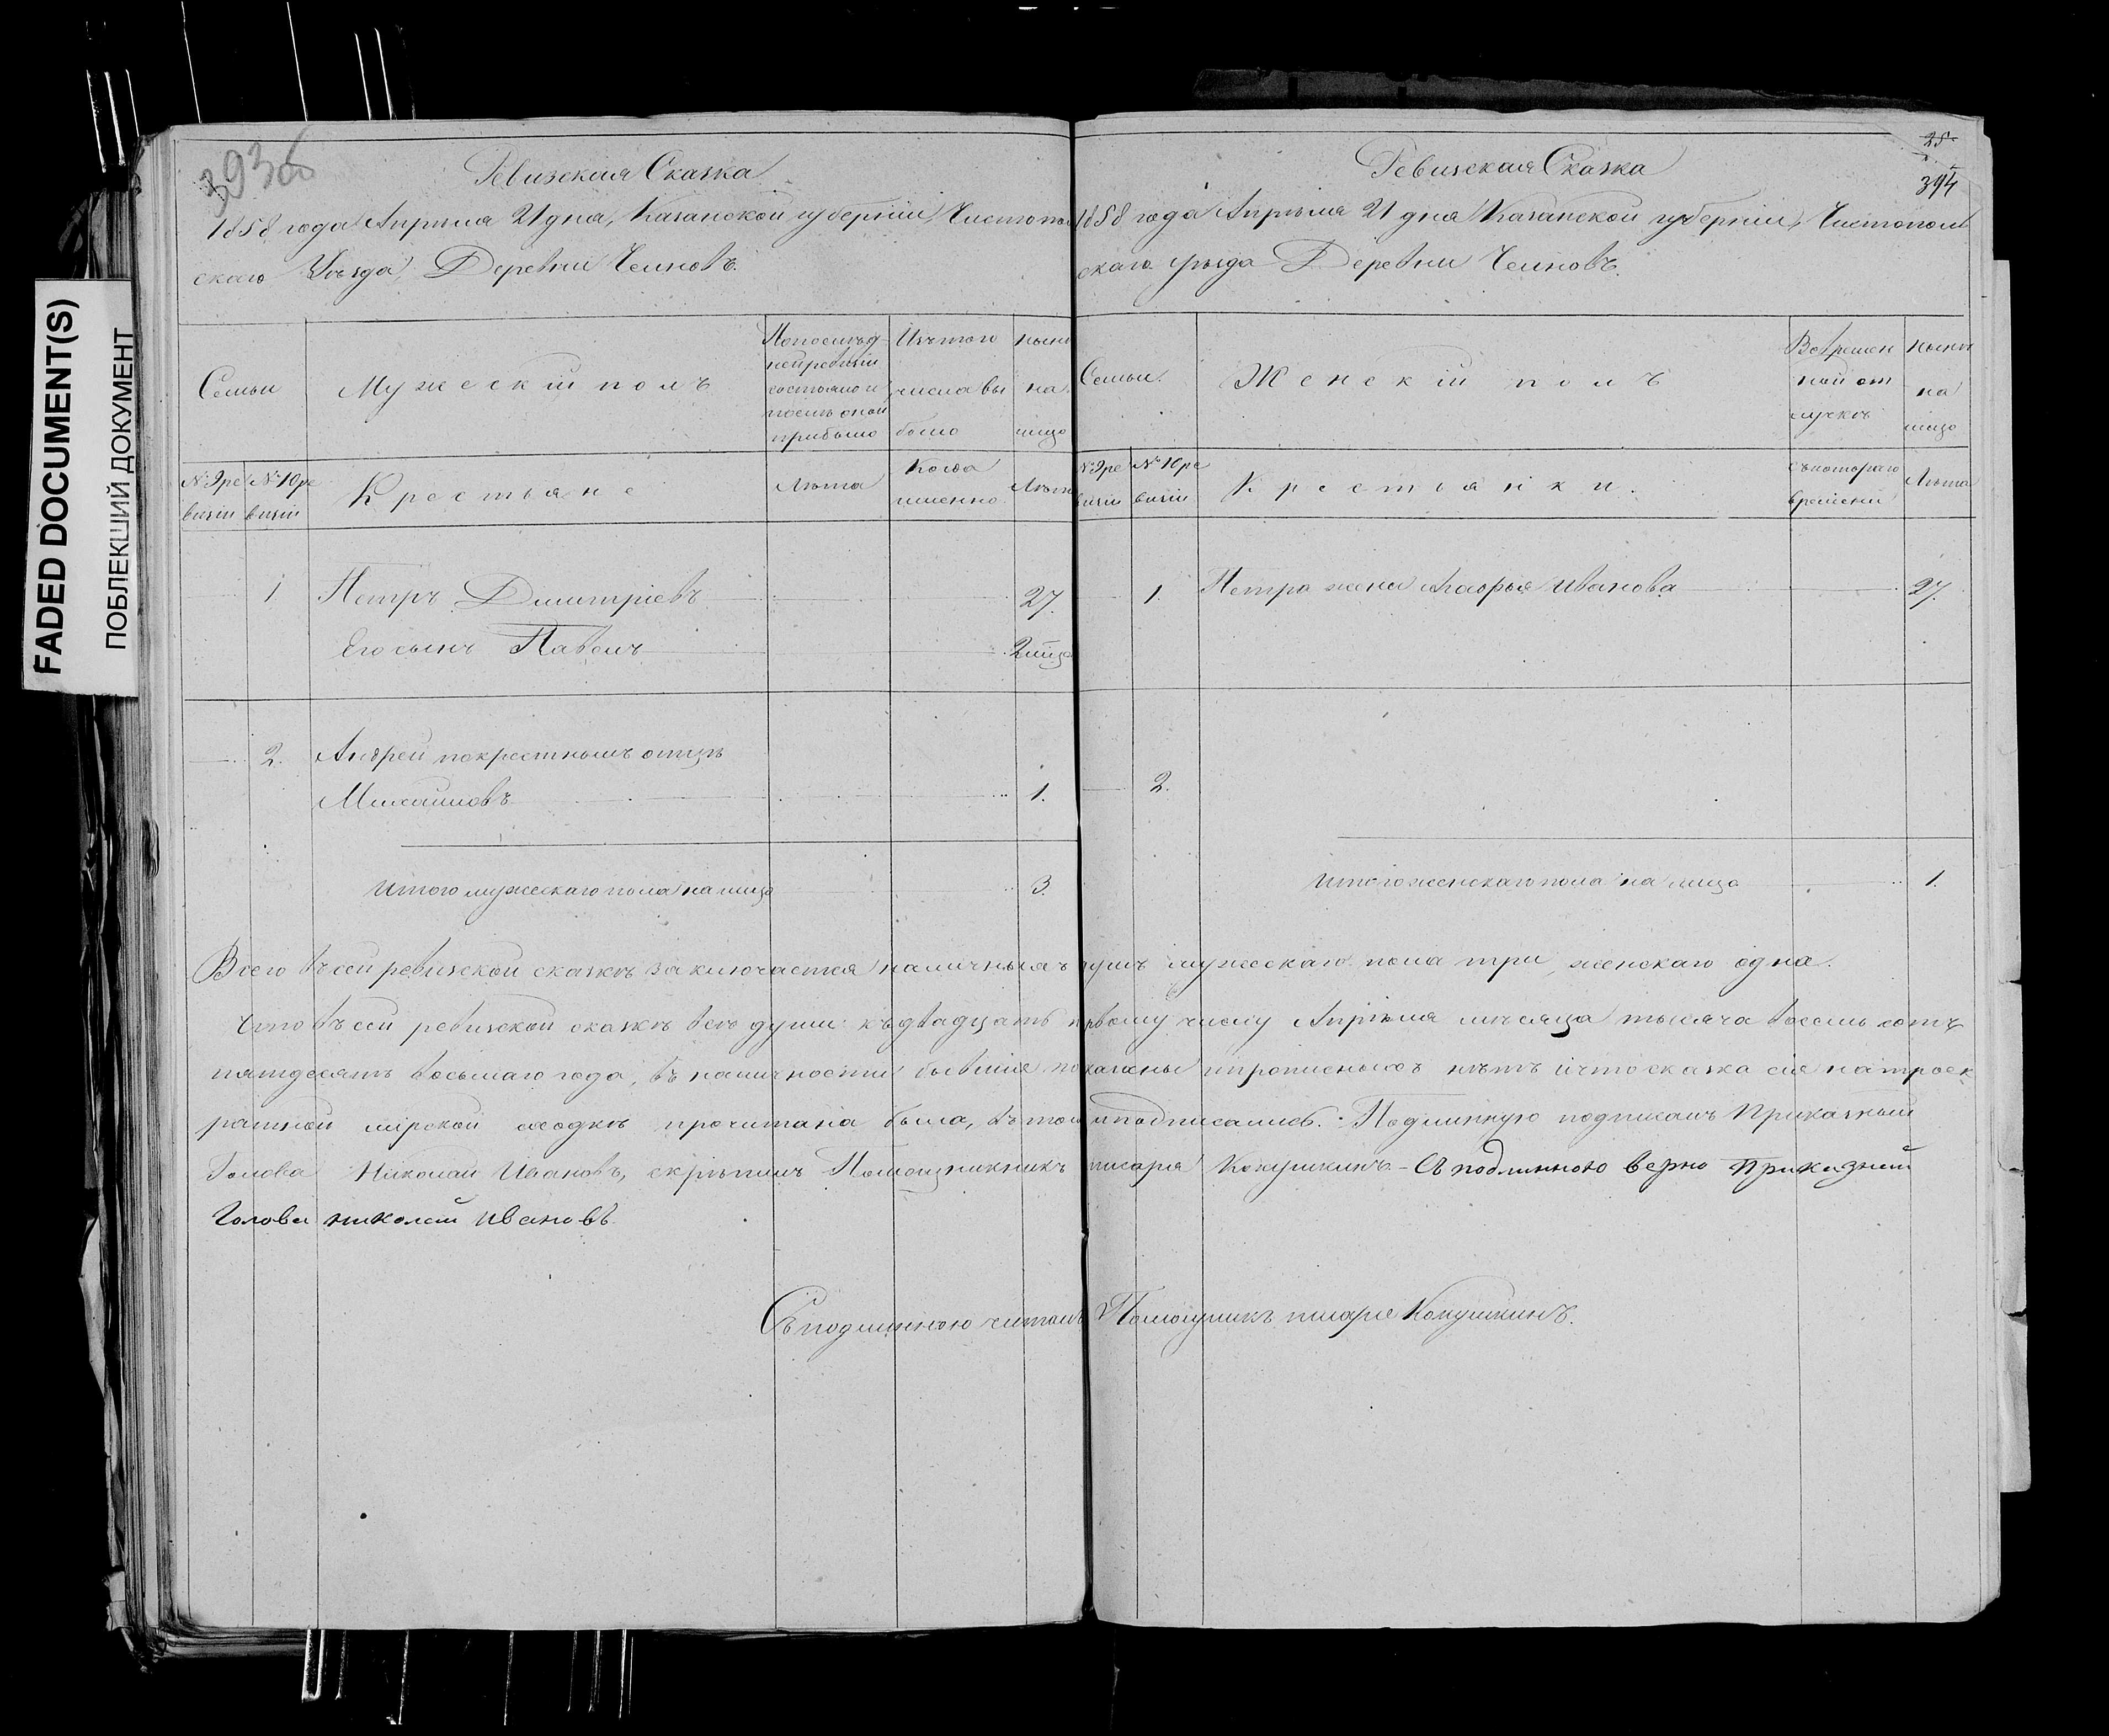 FADED DOCUMENT(S)
ПОБЛЕКШИЙ ДОКУМЕНТ
393об
Ревизская Сказка
1858 года Апрѣля 21 дня, Казанской губерніи, Чистополь
скаго Уѣзда, Деревни
Семьи
Мужескій полъ
Попослѣд
ней ревизіи
состояло и
послѣ оной
прибыло
Изъ того
числа вы
было
нынѣ
на
лицо
№ 9 ре
визіи
№ 10 ре
визіи
Крестьяне
Лѣта
Когда
именно
Лѣта
1 Петръ Димитріевъ 27.
Его сынъ Павелъ
2. Андрей покрестномъ отцѣ
Михайловъ 1.
Итого мужескаго пола на лицо 3.
25
394
Ревизская Сказка
1858 года Апрѣля 21 дня Казанской губерніи, Чистополь
скаго уѣзда Деревни
Семьи.
Женскій полъ
Вовремен
ной от
лучкѣ
нынѣ
на
лицо
№ 9 ре
визіи
№ 10 ре
визіи
Крестьянки.
съкотораго
времени
Лѣта
1. Петра жена Марья Иванова 27.
2.
Итого женскаго пола на лицо 1.
Всего въсей ревизской сказкѣ заключается наличныхъ душъ мужескаго пола три, женскаго одна.
Что въ сей ревизской сказкѣ всѣ души къ двадцать первому числу Апрѣля мѣсяца тысяча восемь сотъ
пятдесятъ восьмаго года, въ наличности бывшіе показаны ипрописныхъ нѣтъ ичто сказка сія натроек
ратной мірской сходкѣ прочитана была, вътом иподписались. Подлинную подписалъ Приказный
Голова Николай Ивановъ, скрѣпилъ писаря Кокушкинъ. - Съ подлинною верно Приказной
Голова николай Ивановъ
Съ подлинною читалъ Помощникъ писаря Кокушкинъ.